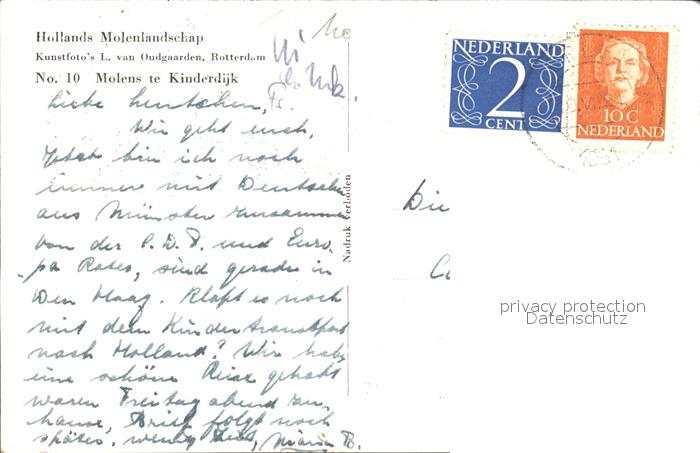 Hollands Molenlandschap
Kunstfoto's L. van Oudgaarden, Rotterdam
No. 10 Molens te Kinderdijk
Liebe
Wie geht euch,
bin ich noch
immer mit Deutschen
aus Münster zusammen
von der P.D.P. und Euro-
pa Rates, sind gerade in
Den Haag. Klapt es noch
mit dem Kindertransport
nach Holland? Wir hab
eine schöne Reise gehabt
waren Freitag abend zu-
hause, Brief folgt noch
später. wenig Zeit, Maria B.
Nadruk verboden
NEDERLAND
2
CENT
10 C
NEDERLAND
Die
privacy protection
Datenschutz